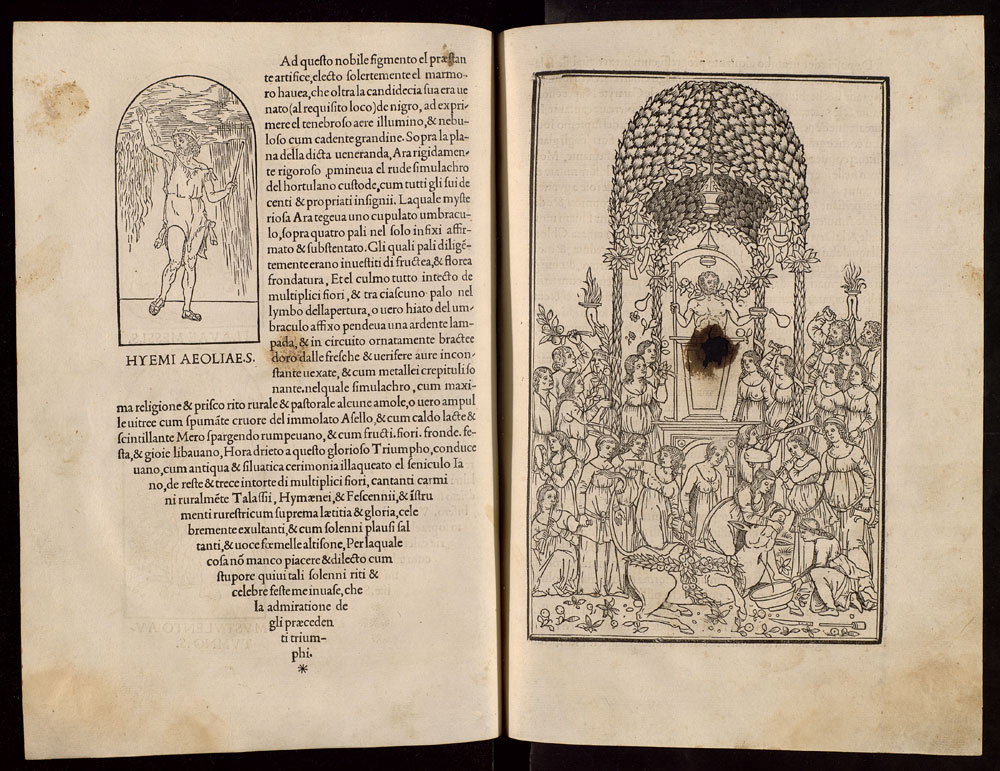 Ad queſto nobile figmento el præſtan
te artifice, electo ſolertemente el marmo-
ro hauea, che oltra la candidecia ſua era ue
nato (al requiſito loco) de nigro, ad expri-
mere el tenebroſo aere illumino, & nebu-
loſo cum cadente grandine. Sopra la pla-
na della dicta ueneranda, Ara rigidamen-
te rigoroſo, ꝓmineua el rude ſimulachro
del hortulano cuſtode, cum tutti gli ſui de
centi & propriati inſignii. Laquale myſte
rioſa Ara tegeua uno cupulato umbracu-
lo, ſopra quatro pali nel ſolo infixi affir-
mato & ſubſtentato. Gli quali pali diligē-
temente erano inueſtiti di fructea, & florea
frondatura, Et el culmo tutto intecto de
multiplici fiori, & tra ciaſcuno palo nel
lymbo dellapertura, o uero hiato del um-
braculo affixo pendeua una ardente lam-
pada, & in circuito ornatamente bractee
doro dalle freſche & uerifere aure incon-
ſtante uexate, & cum metallei crepituli ſo
nante. nelquale ſimulachro, cum maxi-
HYEMI AEOLIAE.S.
ma religione & priſco rito rurale & paſtorale alcune amole, o uero ampul
le uitree cum ſpumāte cruore del immolato Aſello, & cum caldo lacte &
ſcintillante Mero ſpargendo rumpeuano, & cum fructi. fiori. fronde. fe-
ſta, & gioie libauano, Hora drieto a queſto glorioſo Triumpho, conduce
uano, cum antiqua & ſiluatica cerimonia illaqueato el ſeniculo Ia
no, de reſte & trece intorte di multiplici fiori, cantanti carmi
ni ruralmēte Talaſſii, Hymænei, & Feſcennii, & iſtru
menti rureſtri cum ſuprema lætitia & gloria, cele
bremente exultanti, & cum ſolenni plauſi ſal
tanti, & uoce fœmelle altiſone, Per laquale
coſa nō manco piacere & dilecto cum
ſtupore quiui tali ſolenni riti &
celebre feſte me inuaſe, che
la admiratione de
gli præceden
ti trium-
phi.
*